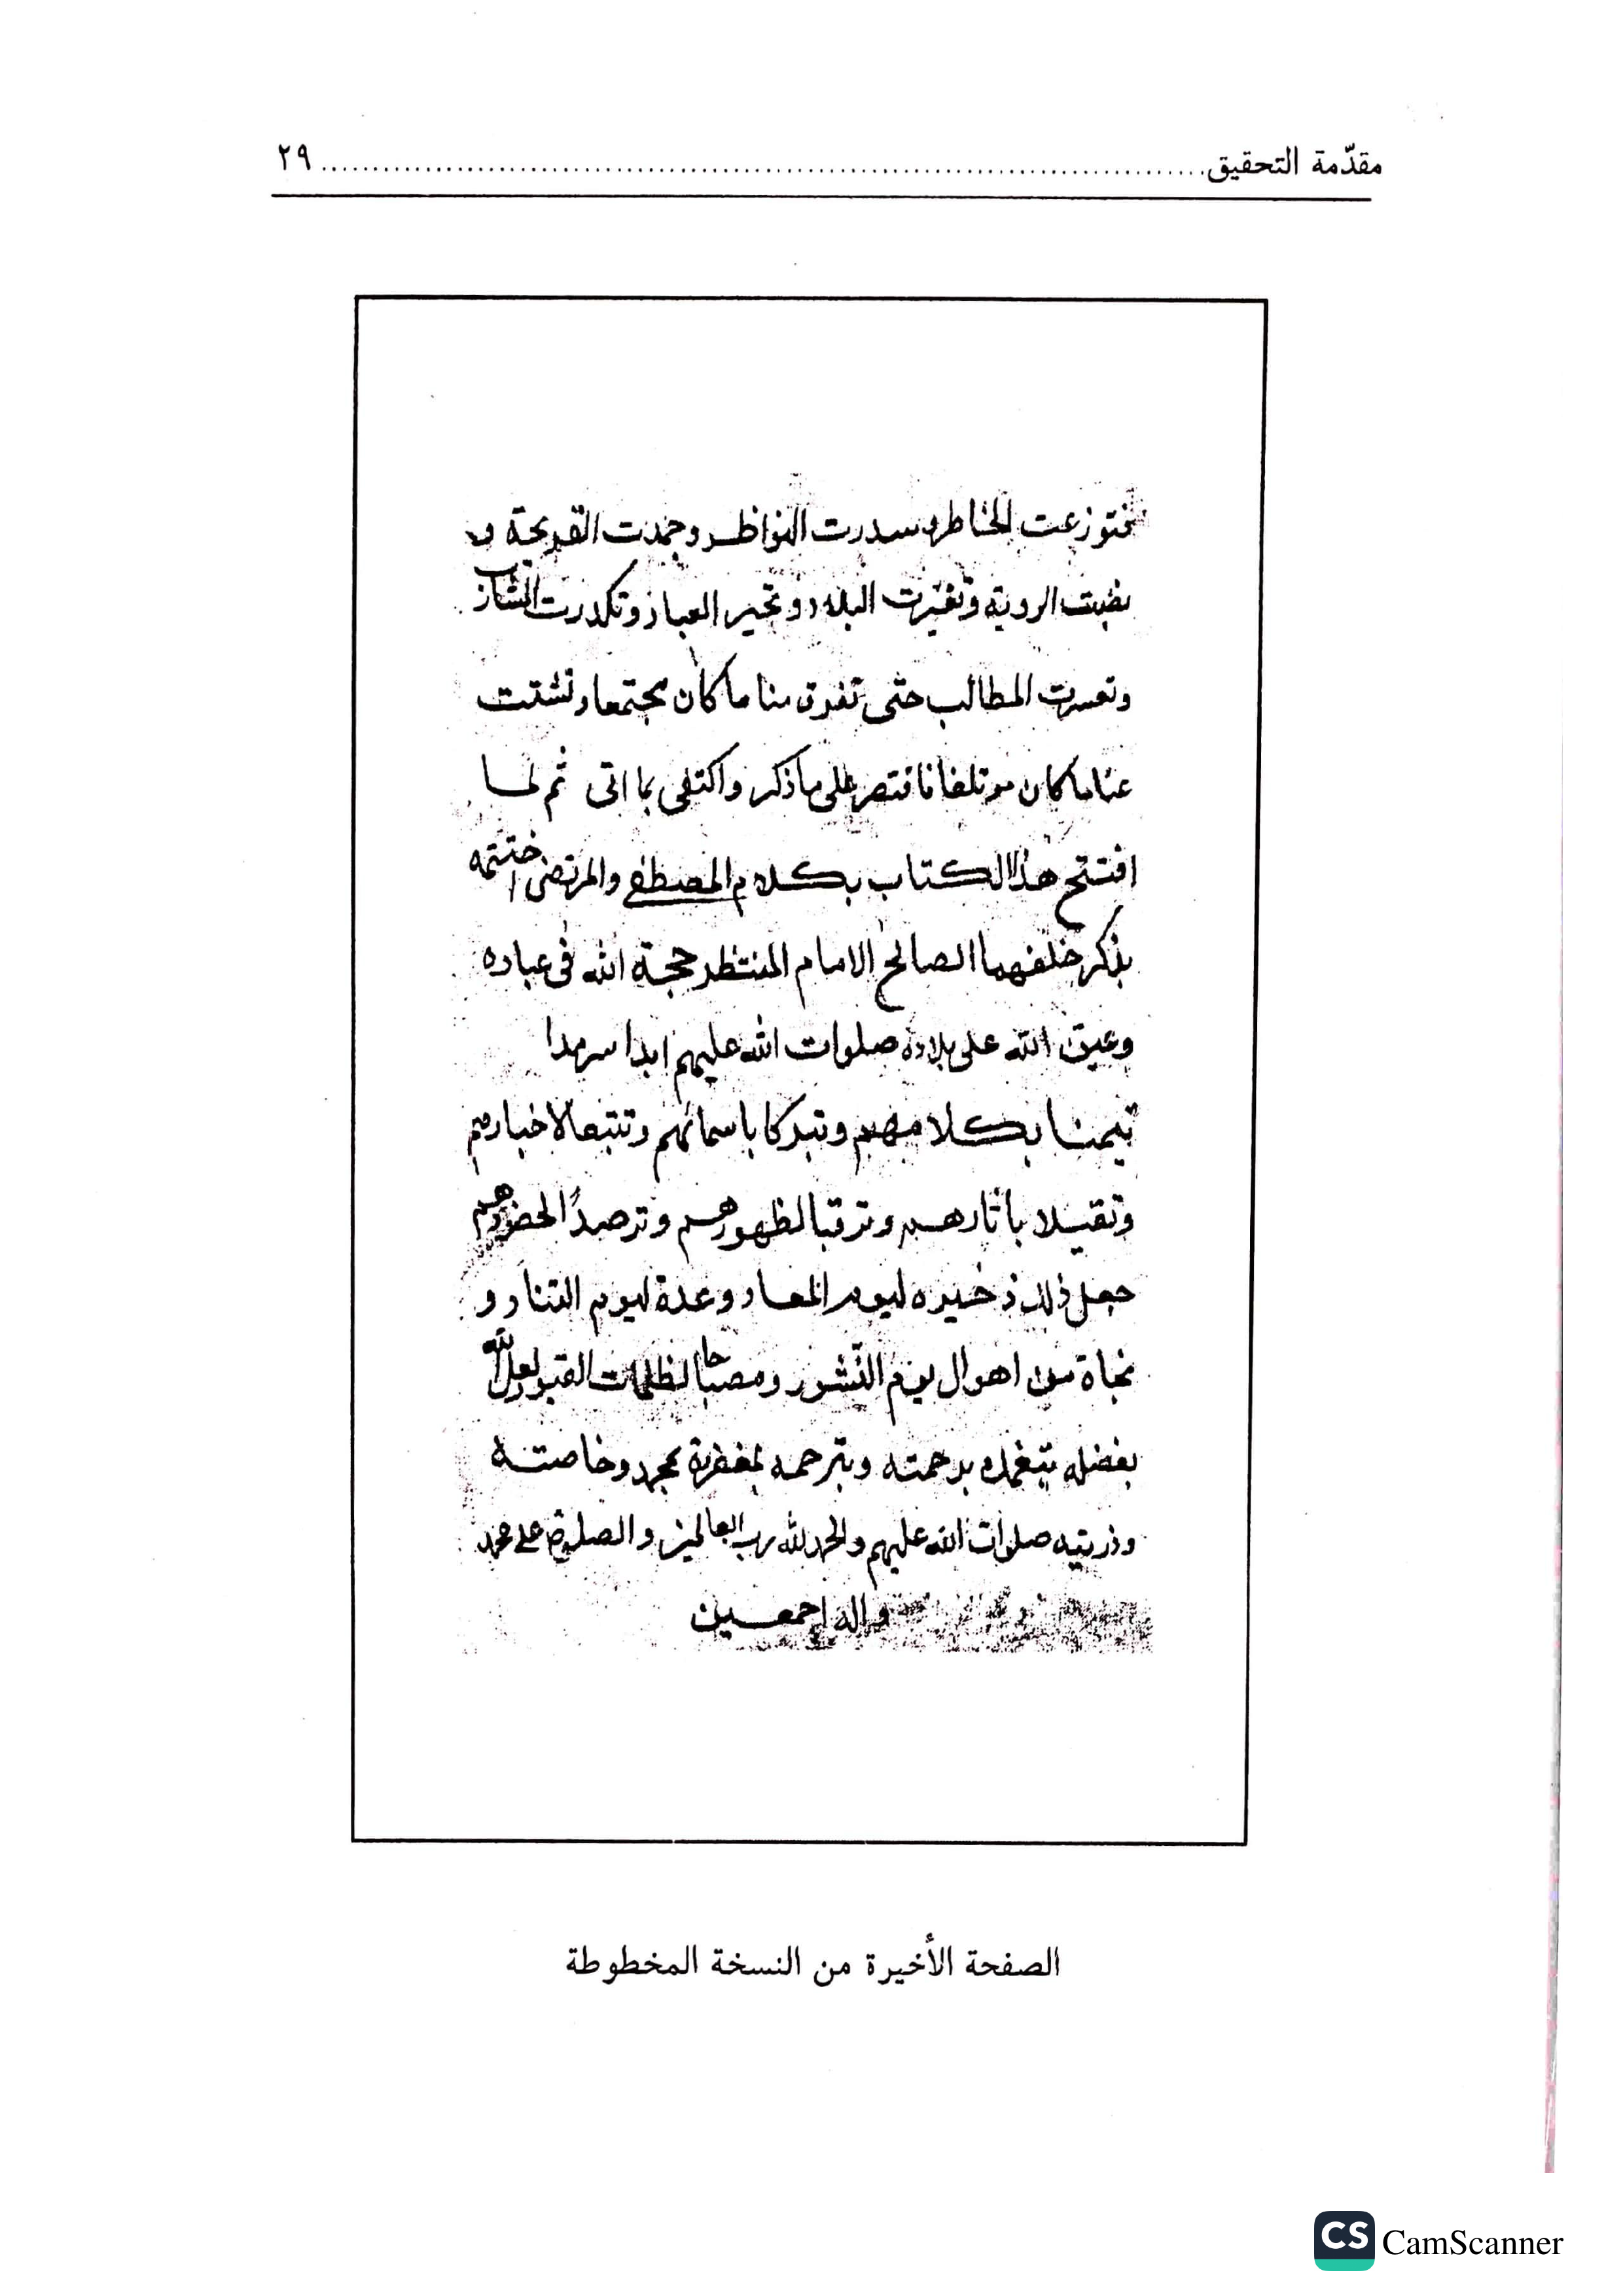 مقدّمة التحقيق ........ ٢٩
فتوزعت الخاطر و سدرت النواظر وجمدت القريحة و
نضبت الروية وتغيرت البلاد و تحير العباد وتكدرت المشارب
وتعسرت المطالب حتى تفرق منا ما كان مجتمعا وتشتت
عنا ما كان موتلفا فاقتصر على ما ذكر واكتفى بما اتى ثم لما
افتتح هذا الكتاب بكلام المصطفى والمرتضى اختتمه
بذكر خلفهما الصالح الامام المنتظر حجة الله فى عباده
وعين الله على بلاده صلوات الله عليهم ابدا سرمدا
تيمنا بكلامهم وتبركا باسمائهم وتتبعا لاخبارهم
وتقيلا بأثارهم وترقبا لظهورهم وترصدًا لحضورهم
جعل ذلك ذخيره ليوم المعاد وعدة ليوم التناد و
نجاة من اهوال يوم النشور ومصباحا لظلمات القبور لعل الله
بفضله يتغمده برحمته ويترحمه بمغفرة بمحمد وخاصته
وذريته صلوات الله عليهم والحمد لله رب العالمين والصلوة على محمد
واله اجمعين
الصفحة الأخيرة من النسخة المخطوطة
CS CamScanner